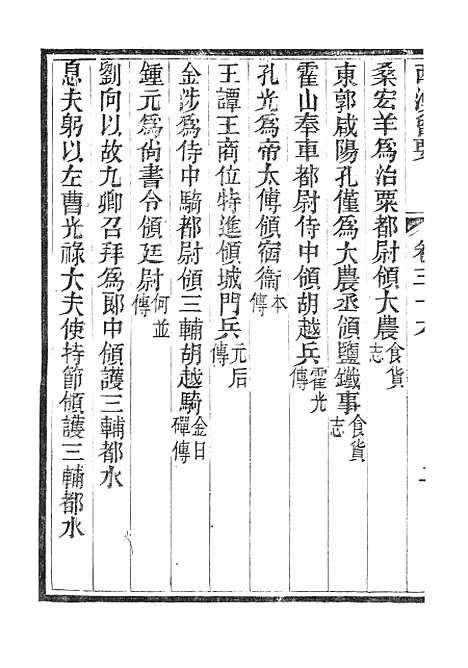 桑宏羊爲治粟都尉領大農食貨志
東郭咸陽孔僅爲大農丞領鹽鐵事食貨志
霍山奉車都尉侍中領胡越兵霍光傳
孔光爲帝太傅領宿衞本傳
王譚王商位特進領城門兵元后傳
金涉爲侍中騎都尉領三輔胡越騎金日磾傳
鍾元爲尚書令領廷尉何並傳
劉向以故九卿召拜爲郎中領護三輔都水
息夫躬以左曹光祿大夫使持節領護三輔都水